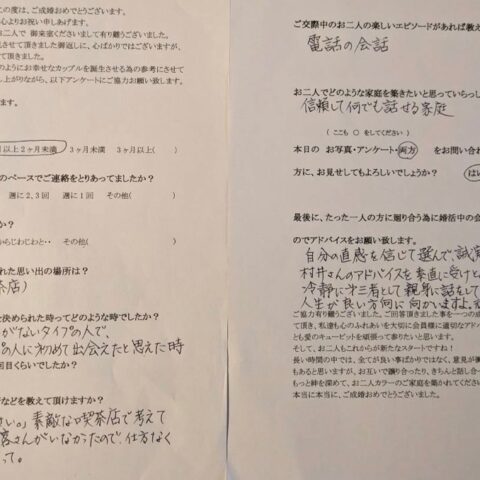 の度は、ご成婚おめでとうございます。
心よりお祝い申しあげます。
お二人で 御来室くださいまして有り難うございました。
させて頂きました御返しに、心ばかりではございますが、
て頂きました。
のようにお幸せなカップルを誕生させる為の参考にさせて
し上がりながら、以下アンケートにご協力お願い致します。
ます。
月以上2ヶ月未満 3ヶ月未満 3ヶ月以上( )
のペースでご連絡をとりあってましたか?
週に2,3回 週に1回 その他( )
か?
からじわじわと‥ その他( )
れた思い出の場所は?
茶店)
を決められた時ってどのような時でしたか?
がないタイプの人で、
の人に初めて出会えたと思えた時
回目くらいでしたか?
などを教えて頂けますか?
さい。」素敵な喫茶店で考えて
客さんがいなかったので、仕方なく
って。
ご交際中のお二人の楽しいエピソードがあれば教え
電話の会話
お二人でどのような家庭を築きたいと思っていらっし
信頼して何でも話せる家庭
( ここも ○ をしてください )
本日の お写真・アンケート・両方 をお問い合わ
方に、お見せしてもよろしいでしょうか? はい
最後に、たった一人の方に廻り合う為に婚活中の会
のでアドバイスをお願い致します。
自分の直感を信じて選んで試
村井さんのアドバイスを素直に受け
冷静に第三者として親身に話をして
人生が良い方向に向かいますよ。
ご協力有り難うございました。ご回答頂きました事を一つの成
て頂き、私達も心のふれあいを大切に会員様に適切なアドバ
とも愛のキューピットを頑張って参りたいと思います。
そして、お二人もこれからが新たなスタートですネ!
長い時間の中では、全てが良い事ばかりではなく、意見が衝
もあると思いますが、お互いで譲り合ったり、きちんと話し合っ
もっと絆を深めて、お二人カラーのご家庭を築かれてください
本当に本当に、ご成婚おめでとうございました。